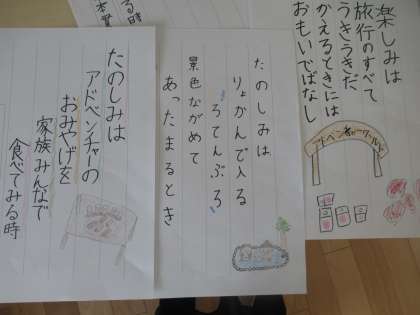 楽しみは
旅行のすべて
うきうきだ
かえるときには
おもいでばなし
アドベンチャーワールド
たのしみは
りょかんで入る
ろてんぶろ
景色ながめて
あったまるとき
たのしみは
アドベンチャの
おみやげを
家族みんなで
食べてみる時
る時